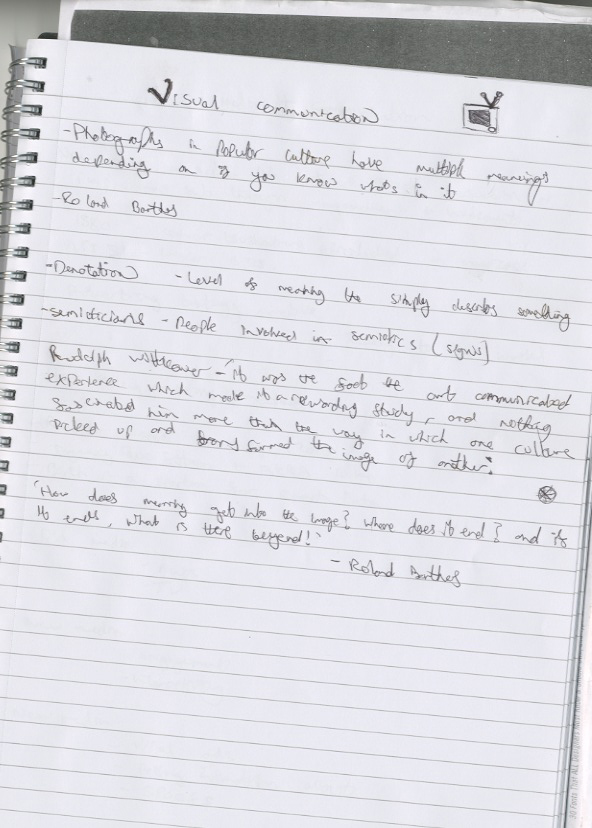 Visual communication
-Photographs in Popular culture have multiple meanings
depending on if you know whats in it
-Roland Barthes
-Denotation - Level of meaning the simply describes something
-semioticians - People involved in semiotics (signs)
Rudolph Wittkower - 'it was the fact the art communicated
experience which made it a rewarding study, and nothing
fascinated him more than the way in which one culture
picked up and transformed the image of another.'
'How does meaning get into the image? where does it end? and if
it ends, what is there beyond!'
- Roland Barthes